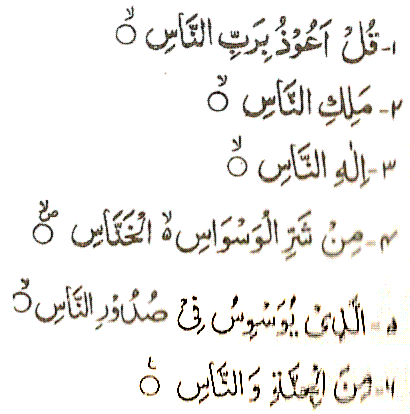 ۱- قُلْ اَعُوْذُ بِرَبِّ النَّاسِ ۙ○
۲- مَلِكِ النَّاسِ ۙ○
۳- اِلٰهِ النَّاسِ ۙ○
۴- مِنْ شَرِّ الْوَسْوَاسِ ۙ الْخَنَّاسِ ۪ۙ○
۵- الَّذِیْ یُوَسْوِسُ فِیْ صُدُوْرِ النَّاسِ ۙ○
۶- مِنَ الْجِنَّةِ وَ النَّاسِ ○